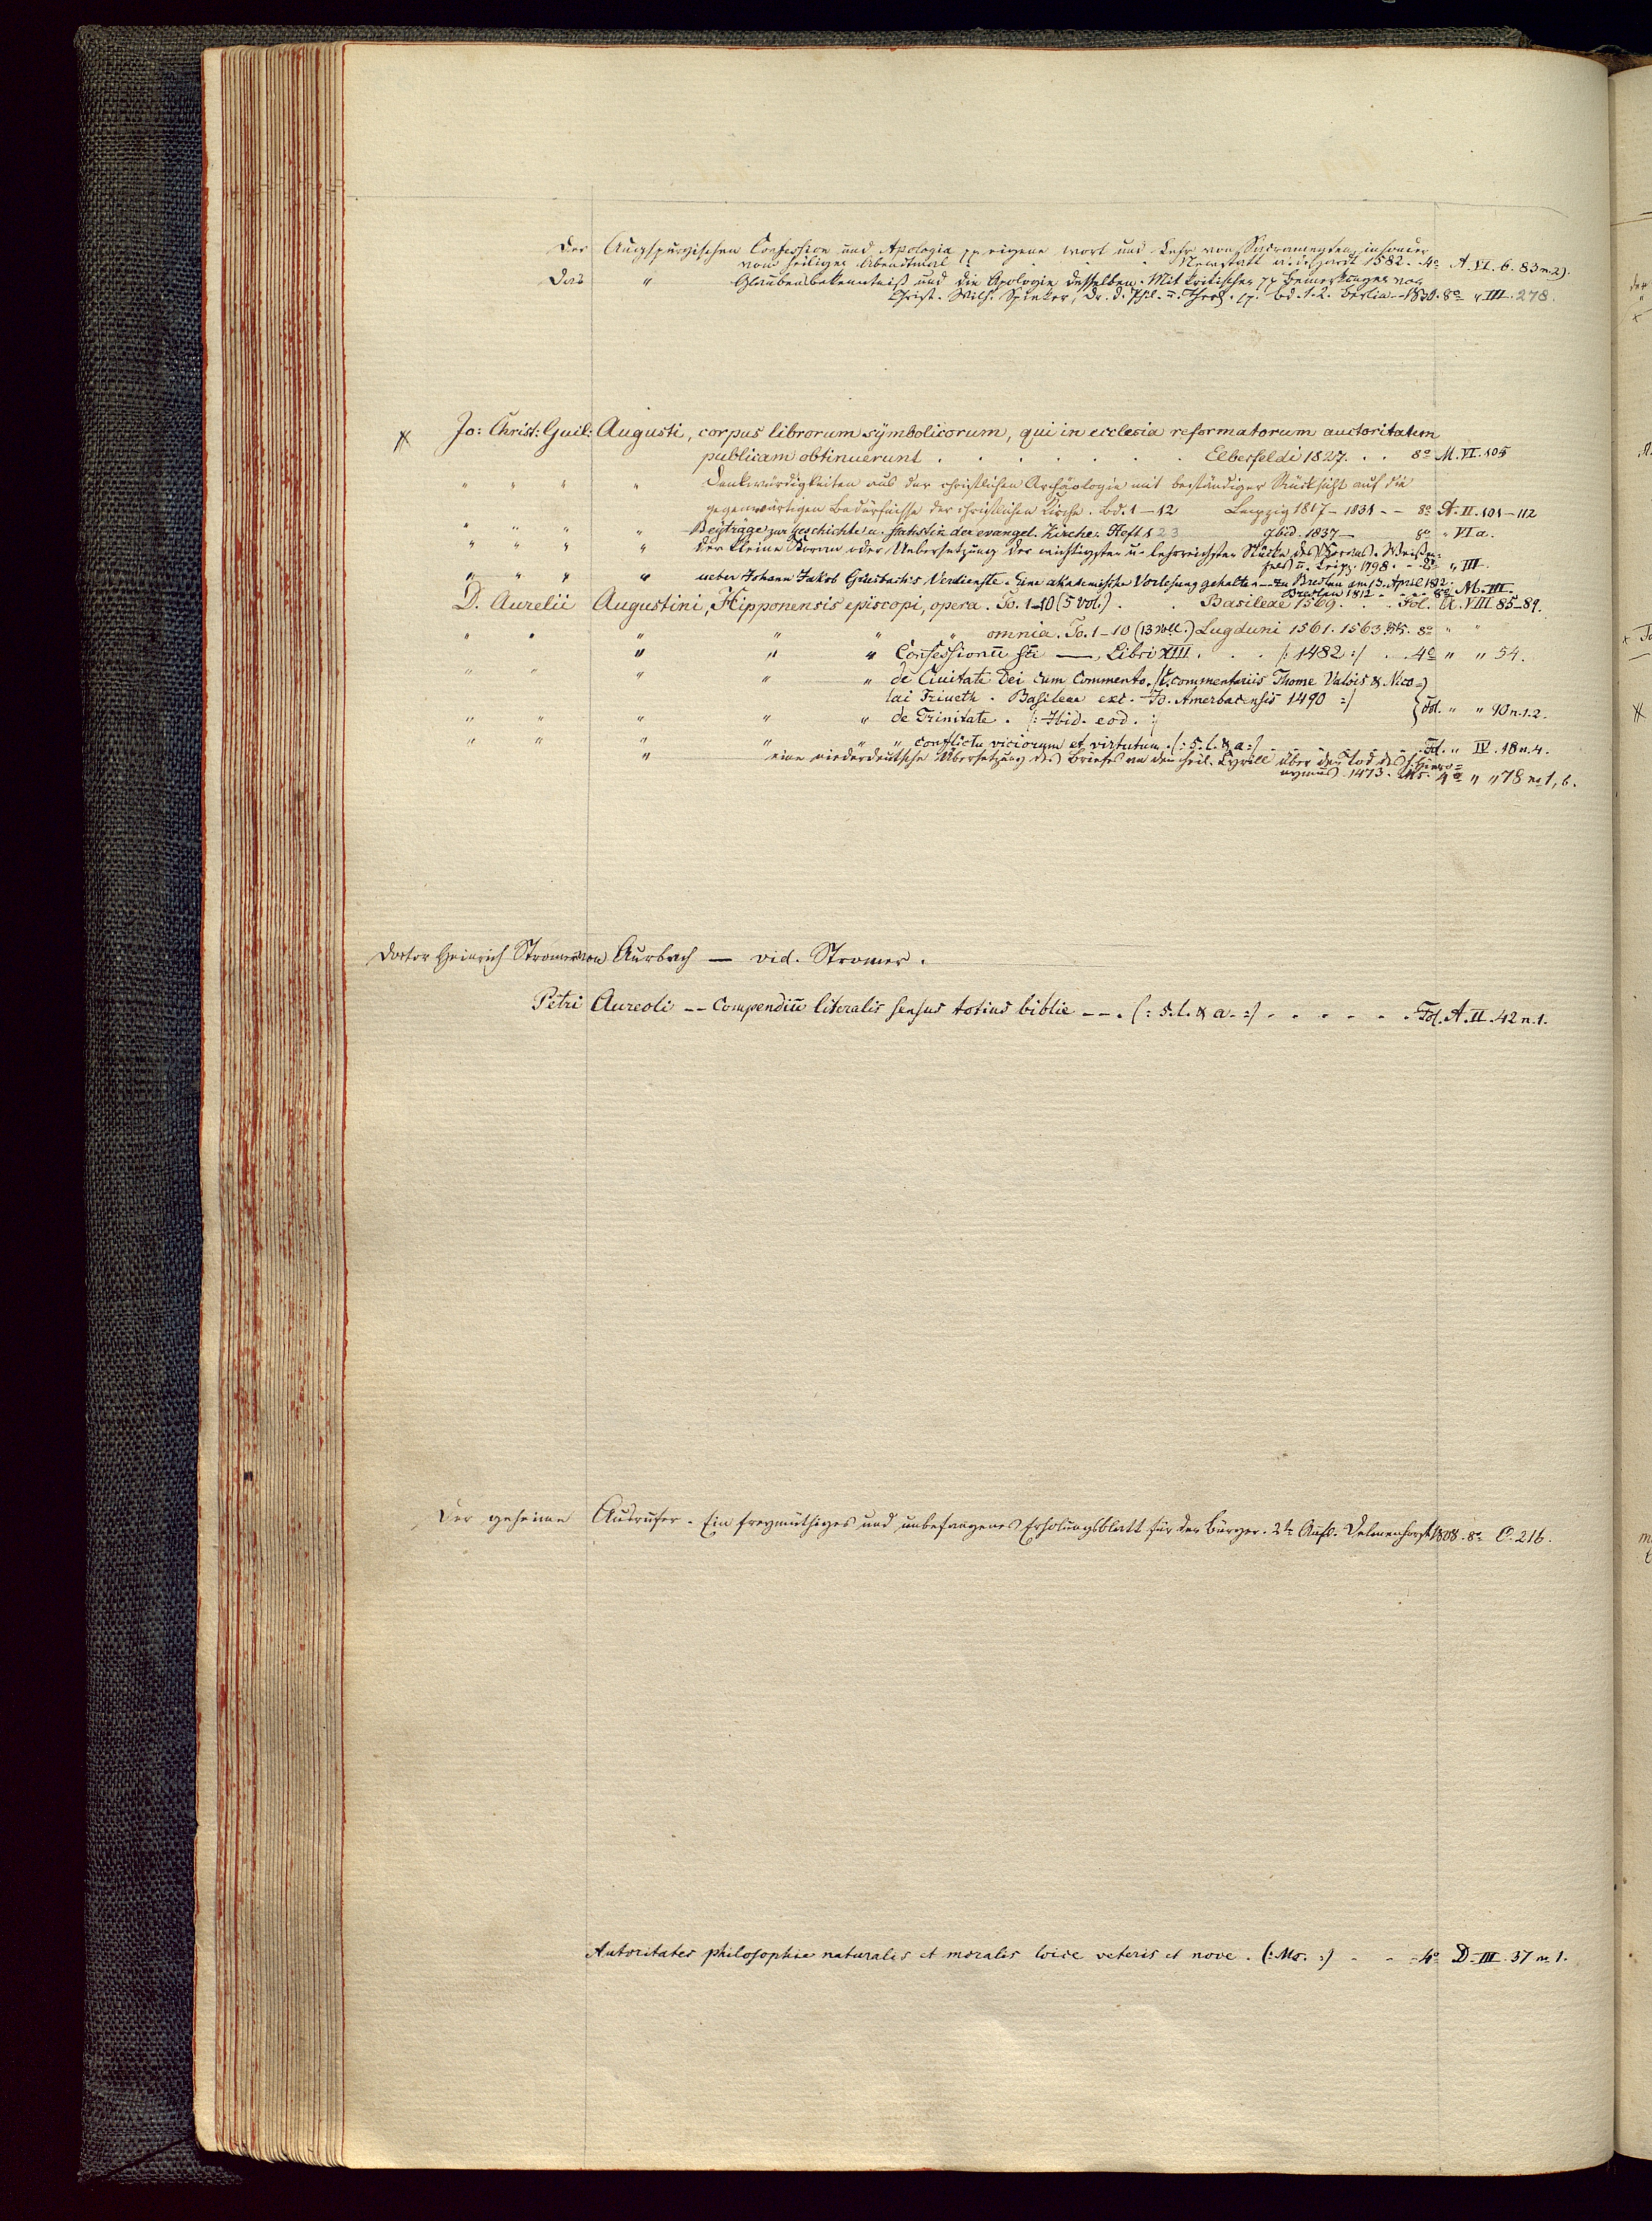 Der Augspurgischen Confession und Apologia pp eigene wort und Lehr von Sacramenten, insonder
vom heiligen Abendtmal . Newstatt a. d. Hardt 1582. 4º A. VI. 6. 83 n. 2).
Das " Glaubensbekenntniß und die Apologie desselben. Mit kritischen pp Bemerkungen von
Christ. Wilh. Spieker, Dr. d. Phil. u. Theol. pp. Bd. 1-2. Berlin 1830. 8º " III. 278.
Jo: Christ: Guil: Augusti, corpus librorum symbolicorum, qui in ecclesia reformatorum auctoritatem
publicam obtinuerunt . . . . . . . Elberfeldi 1827. . . 8º M. VI. 105
" " " " Denkwürdigkeiten aus der christlichen Archäologie mit beständiger Rücksicht auf die
gegenwärtigen Bedürfnisse der christlichen Kirche. Bd. 1-12 Leipzig 1817-1831 - - 8º A. II. 101-112
" " " " Beyträge zur Geschichte u. Statistik der evangel. Kirche. Heft 1 2 3 Ibid. 1837- 8º " VI a.
" " " " Der kleine Koran oder Uebersetzung der wichtigsten u. lehrreichsten Stücke des Korans. Weißen-
fels u. Leipz. 1798. - 8º " III.
" " " " ueber Johann Jakob Griesbach's Verdienste. Eine akademische Vorlesung gehalten - zu Breslau am 13. April 1812.
Breslau 1812 - - - 8º M. III.
D. Aurelii Augustini, Hipponensis episcopi, opera. To. 1-10 (5 vol.) . . Basileae 1569. . . Fol. A. VIII. 85-89.
" " " " " " omnia. To. 1-10 (13 Voll.) Lugduni 1561. 1563. 8º " "
" " " Confessionū sti —, Libri XIII. . . /: 1482 :/ . . 4º " " 54.
" " " " " de Ciuitate Dei cum Commento. /: c. commentariis Thome Valois & Nico=
lai Triueth. Basileae exc. Jo. Amerbacensis 1490 :/ } Fol. " " 10 n. 1. 2.
" " " " " de Trinitate. /: Ibid. eod. :/
" " " " " " conflictu viciorum et virtutum. (: s. l. & a :/ . . . Fol. " IV. 18 n. 4.
" eine niederdeutsche Übersetzung des Briefes an den heil. Cyrill über den Tod des h. Hiero=
nymus 1473. Ms. 4º " " 78 n. 1, b.
Doctor Heinrich Stromer von Aurbach — vid. Stromer.
Petri Aureoli -- Compendiū literalis sensus totius biblie --. (: s. l. & a. :/ . . . . . . Fol. A. II. 42 n. 1.
Der geheime Ausrufer. Ein freymüthiges und unbefangenes Erholungsblatt für den Bürger. 2te Aufl. Delmenhorst 1808. 8º C. 216.
Autoritates philosophie naturalis et moralis loice veteris et nove. (: Ms. :) - - - 4º D. III. 37 n. 1.